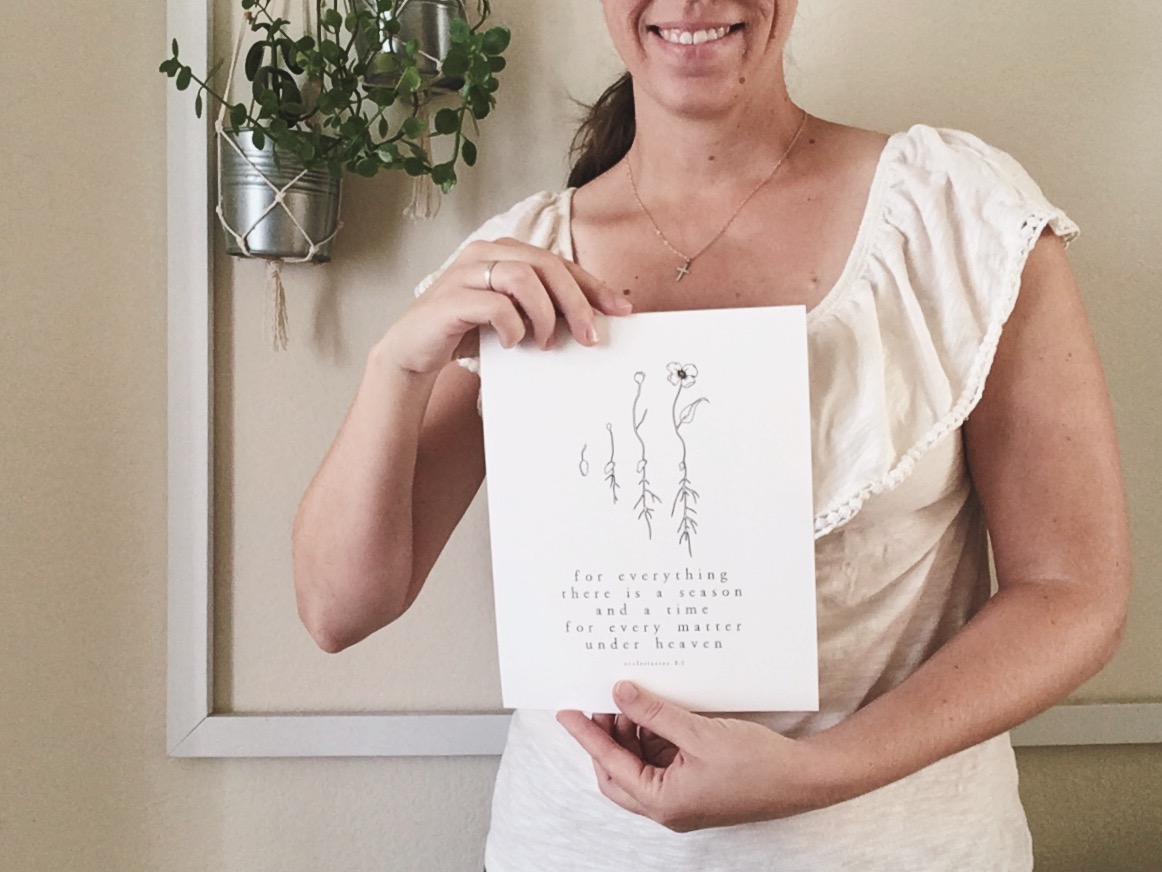 for everything
there is a season
and a time
for every matter
under heaven
ecclesiastes 3:1